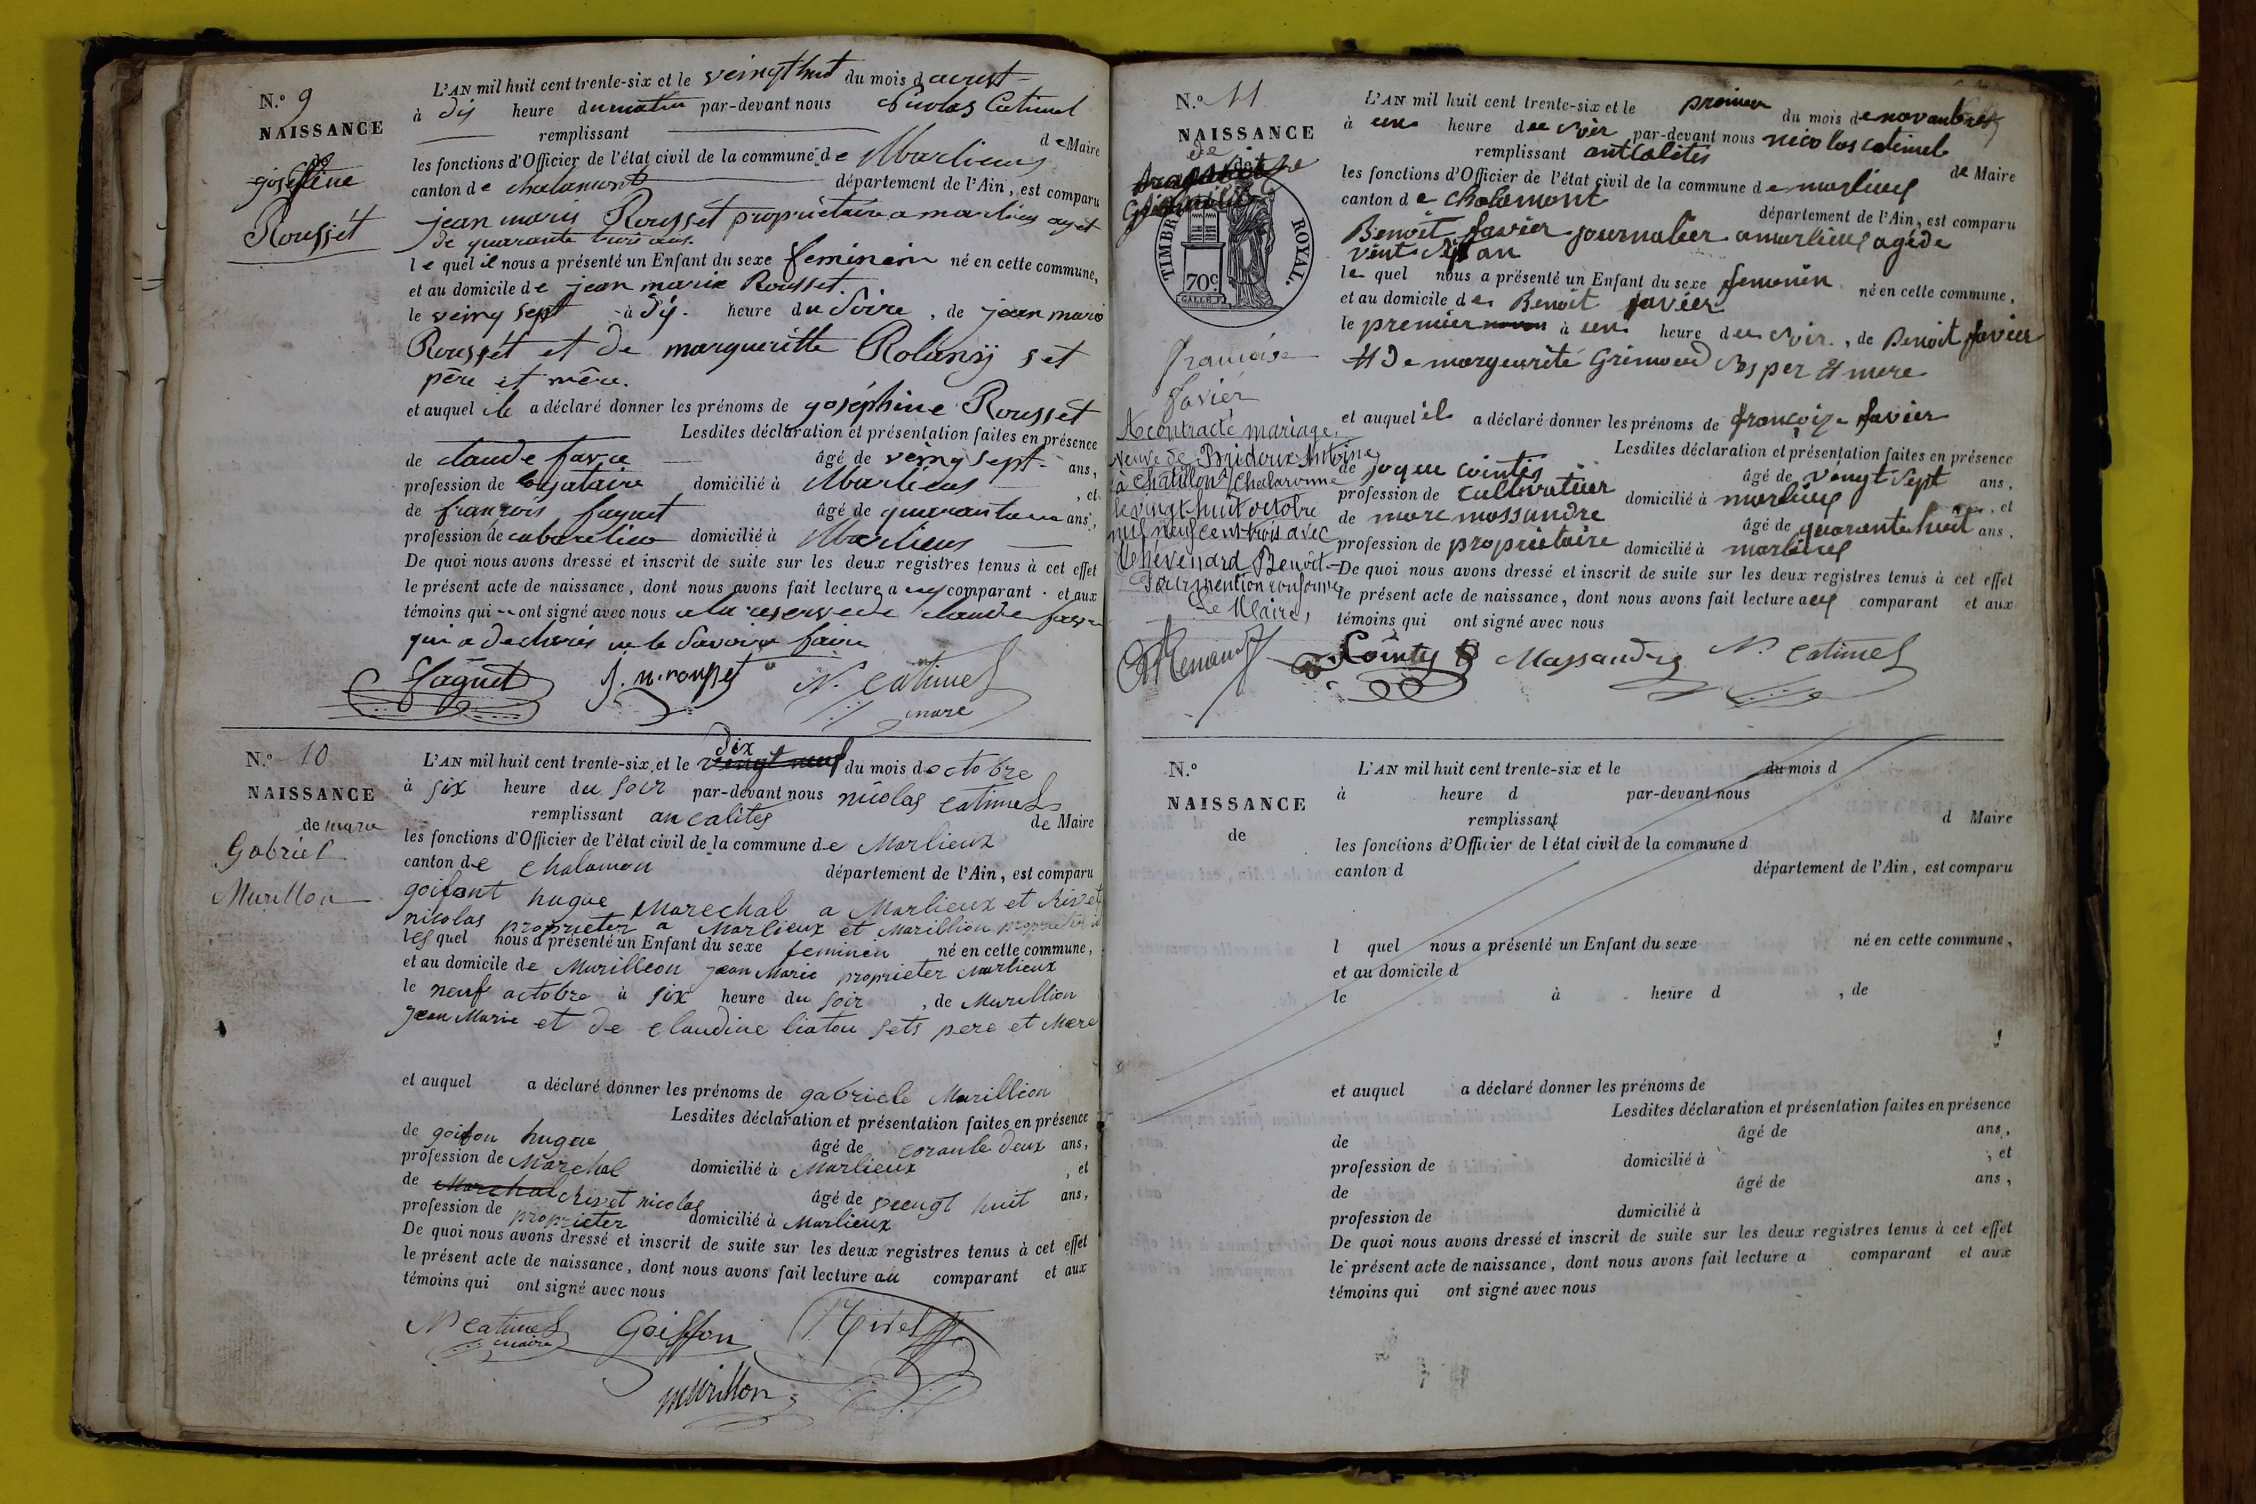 N.º 9
NAISSANCE
de
joséphine
Roussét
L'AN mil huit cent trente-six et le veingt huit du mois d aoust
à dij heure du matin par-devant nous Nicolas Catimel
remplissant de Maire
les fonctions d'Officier de l'état civil de la commune de Marlieux
canton de chalamont département de l'Ain, est comparu
jean marie Roussét propriétaire a marlieux agét
de quarante trois ans.
le quel il nous a présenté un Enfant du sexe feminein né en cette commune,
et au domicile de jean marie Rousset.
le veing sept à dij. heure du Soire, de jean marie
Roussét et de marguеritte Rolansÿ set
père et mère.
et auquel il a déclaré donner les prénoms de joséphine Roussét
Lesdites déclaration et présentation faites en présence
de claude favre âgé de veing sept ans,
profession de domicilié à Marlieux, et
de françois faguet âgé de quarante ans,
profession de cabaretier domicilié à Marlieux
De quoi nous avons dressé et inscrit de suite sur les deux registres tenus à cet effet
le présent acte de naissance, dont nous avons fait lecture a comparant et aux
témoins qui ont signé avec nous a la reserve de claude favre
qui a declarés ne le Savoire faire
faguet J. M. rousset N. catimel
maire
N.º 10
NAISSANCE
de marie
Gabriel
Murillon
L'AN mil huit cent trente-six et le vingt neuf dix du mois doctobre
à six heure du soir par-devant nous nicolas catimel
remplissant an calites de Maire
les fonctions d'Officier de l'état civil de la commune de Marlieux
canton de chalamon département de l'Ain, est comparu
goifont hugue Marechal a Marlieux et Rivet
nicolas proprieter a Marlieux et Marillion proprieter
les quel nous a présenté un Enfant du sexe feminein né en cette commune,
et au domicile de Murilleon jean Marie proprieter Marlieux
le neuf octobre à six heure du soir, de Murillion
jean Marie et de claudine liatou sets pere et Mere
et auquel a déclaré donner les prénoms de gabriele Murillion
Lesdites déclaration et présentation faites en présence
de goifon hugue âgé de corante deux ans,
profession de Marchal domicilié à Marlieux, et
de Marchal Rivet nicolas âgé de veengt huit ans,
profession de proprieter domicilié à Marlieux
De quoi nous avons dressé et inscrit de suite sur les deux registres tenus à cet effet
le présent acte de naissance, dont nous avons fait lecture au comparant et aux
témoins qui ont signé avec nous
N catimel maire Goiffon Rivet
murillon
N.º 11
NAISSANCE
de
TIMBRE ROYAL.
70c
françoise
favier
A contracté mariage,
veuve de Bridoux Antoine,
à Chatillon s/ Chalaronne
le vingt-huit octobre
mil neuf cent trois avec
Thévenard Benoît
Pour mention conforme
Le Maire,
L'AN mil huit cent trente-six et le premier du mois de novanbre
à une heure du soir par-devant nous nicolas catimel
remplissant antcalités de Maire
les fonctions d'Officier de l'état civil de la commune de marlieux
canton de chalamont département de l'Ain, est comparu
Benoit favier journalier a marlieux agé de
vent sept an
le quel nous a présenté un Enfant du sexe femenin né en cette commune,
et au domicile de Benoit favier
le premier à une heure du soir, de Benoit favier
et de marguerite Grimoud ses per et mere
et auquel il a déclaré donner les prénoms de françoize favier
Lesdites déclaration et présentation faites en présence
de joseu cointés âgé de vengt sept ans,
profession de cultivatuer domicilié à marlieux, et
de marc massandre âgé de quarante huit ans.
profession de proprietaire domicilié à marlieux
De quoi nous avons dressé et inscrit de suite sur les deux registres tenus à cet effet
le présent acte de naissance, dont nous avons fait lecture aux comparant et aux
témoins qui ont signé avec nous
Cointy Massandre N. catimel
N.º
NAISSANCE
de
L'AN mil huit cent trente-six et le du mois d
à heure d par-devant nous
remplissant d Maire
les fonctions d'Officier de l'état civil de la commune d
canton d département de l'Ain, est comparu
l quel nous a présenté un Enfant du sexe né en cette commune,
et au domicile d
le à heure d , de
et auquel a déclaré donner les prénoms de
Lesdites déclaration et présentation faites en présence
de âgé de ans,
profession de domicilié à , et
de âgé de ans,
profession de domicilié à
De quoi nous avons dressé et inscrit de suite sur les deux registres tenus à cet effet
le présent acte de naissance, dont nous avons fait lecture a comparant et aux
témoins qui ont signé avec nous